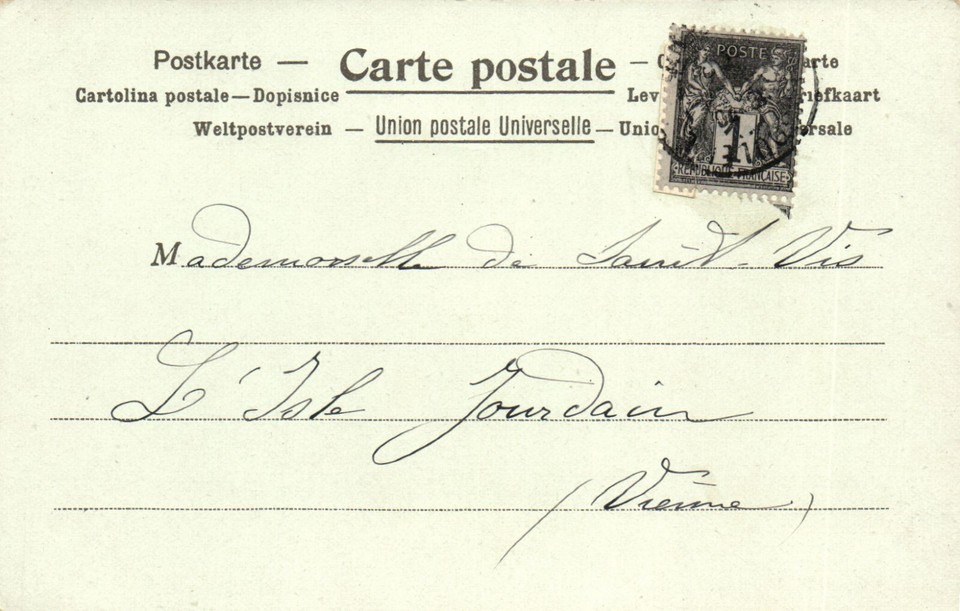 Postkarte — Carte postale —
Cartolina postale — Dopisnice
Weltpostverein — Union postale Universelle —
POSTE
1
REPUBLIQUE FRANÇAISE
Mademoiselle de Saint-Vis
L'Isle Jourdain
(Vienne)